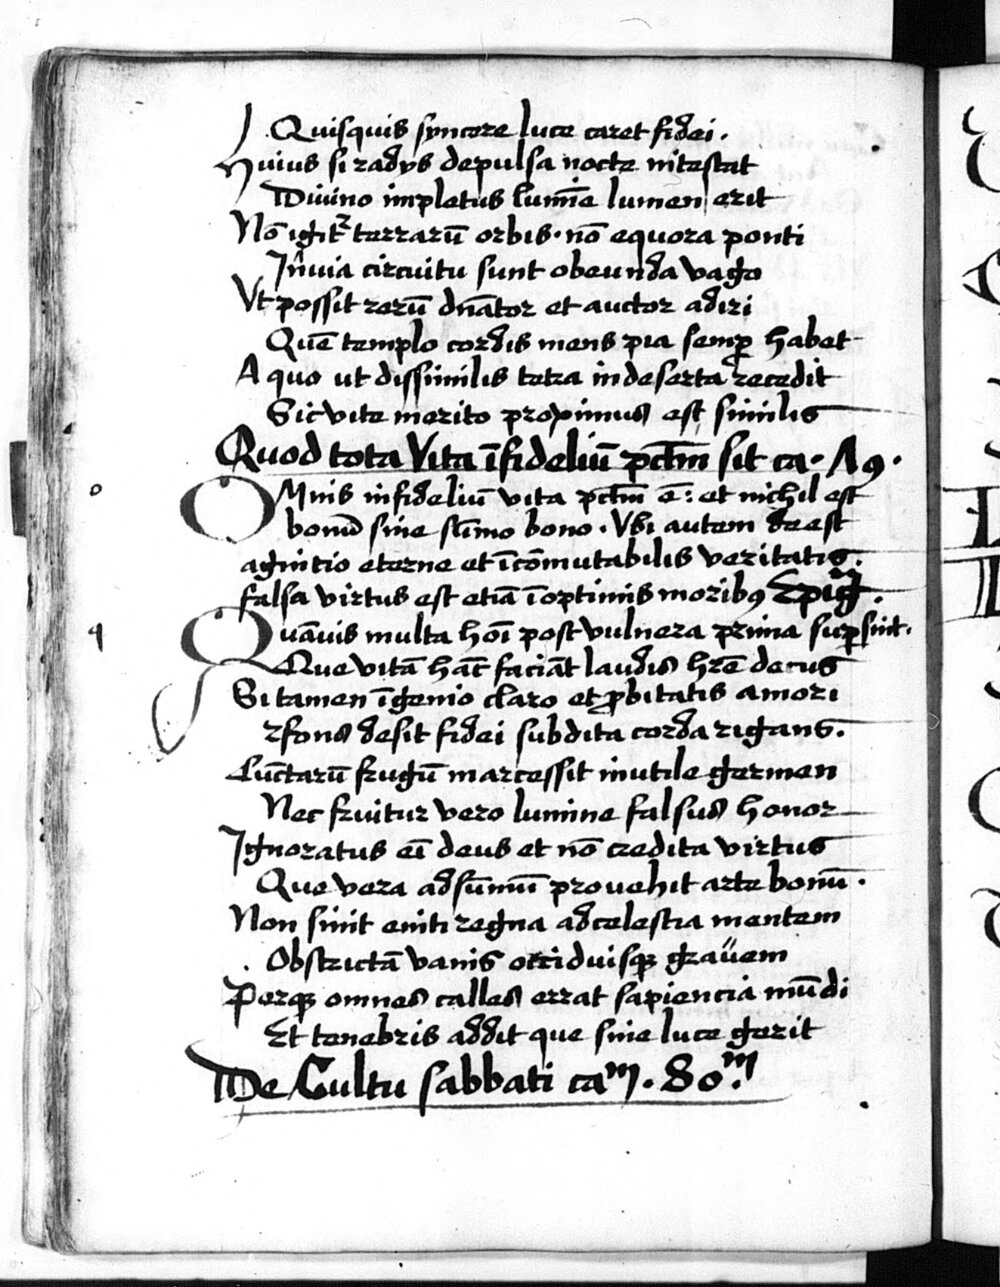 Quisquis syncere luce caret fidei.
Huius si radijs depulsa nocte nitestat
Diuino impletus lumīe lumen erit
Nō igit᷑ terrarū orbis. nō equora ponti
Inuia circuitu sunt obeunda vago
Vt possit rerū dn̄ator et auctor adiri
Quē templo cordis mens pia semꝑ habet
A quo ut dissimilis tetra in deserta recedit
Sic vite merito proximus est similis
Quod tota Vita īfideliū pctm̄ sit ca. 79.
o OMnis infideliū vita pctm̄ ē: et nichil est
bonū sine sūmo bono. Vbi autem deest
agnitio eterne et īcōmutabilis veritatis.
falsa virtus est etiā ī optimis moribꝰ Epigr̄.
q Quāuis multa hoī post vulnera prima suꝑsint.
Que vitā hāc faciāt laudis hr̄e decus
Si tamen īgenio claro et ꝓbitatis amori
rfons desit fidei subdita corda rigans.
Cūctarū frugū marcessit inutile germen
Nec fruitur vero lumine falsus honor
Ignoratus eī deus et nō credita virtus
Que vera ad sūmū prouehit arte bonū.
Non sinit eniti regna ad celestia mentem
Obstrictā vanis occiduisqꝫ grauem
Perqꝫ omnes calles errat sapiencia mūdi
Et tenebris addit que sine luce gerit
De Cultu sabbati caᵐ. 80.ᵐ